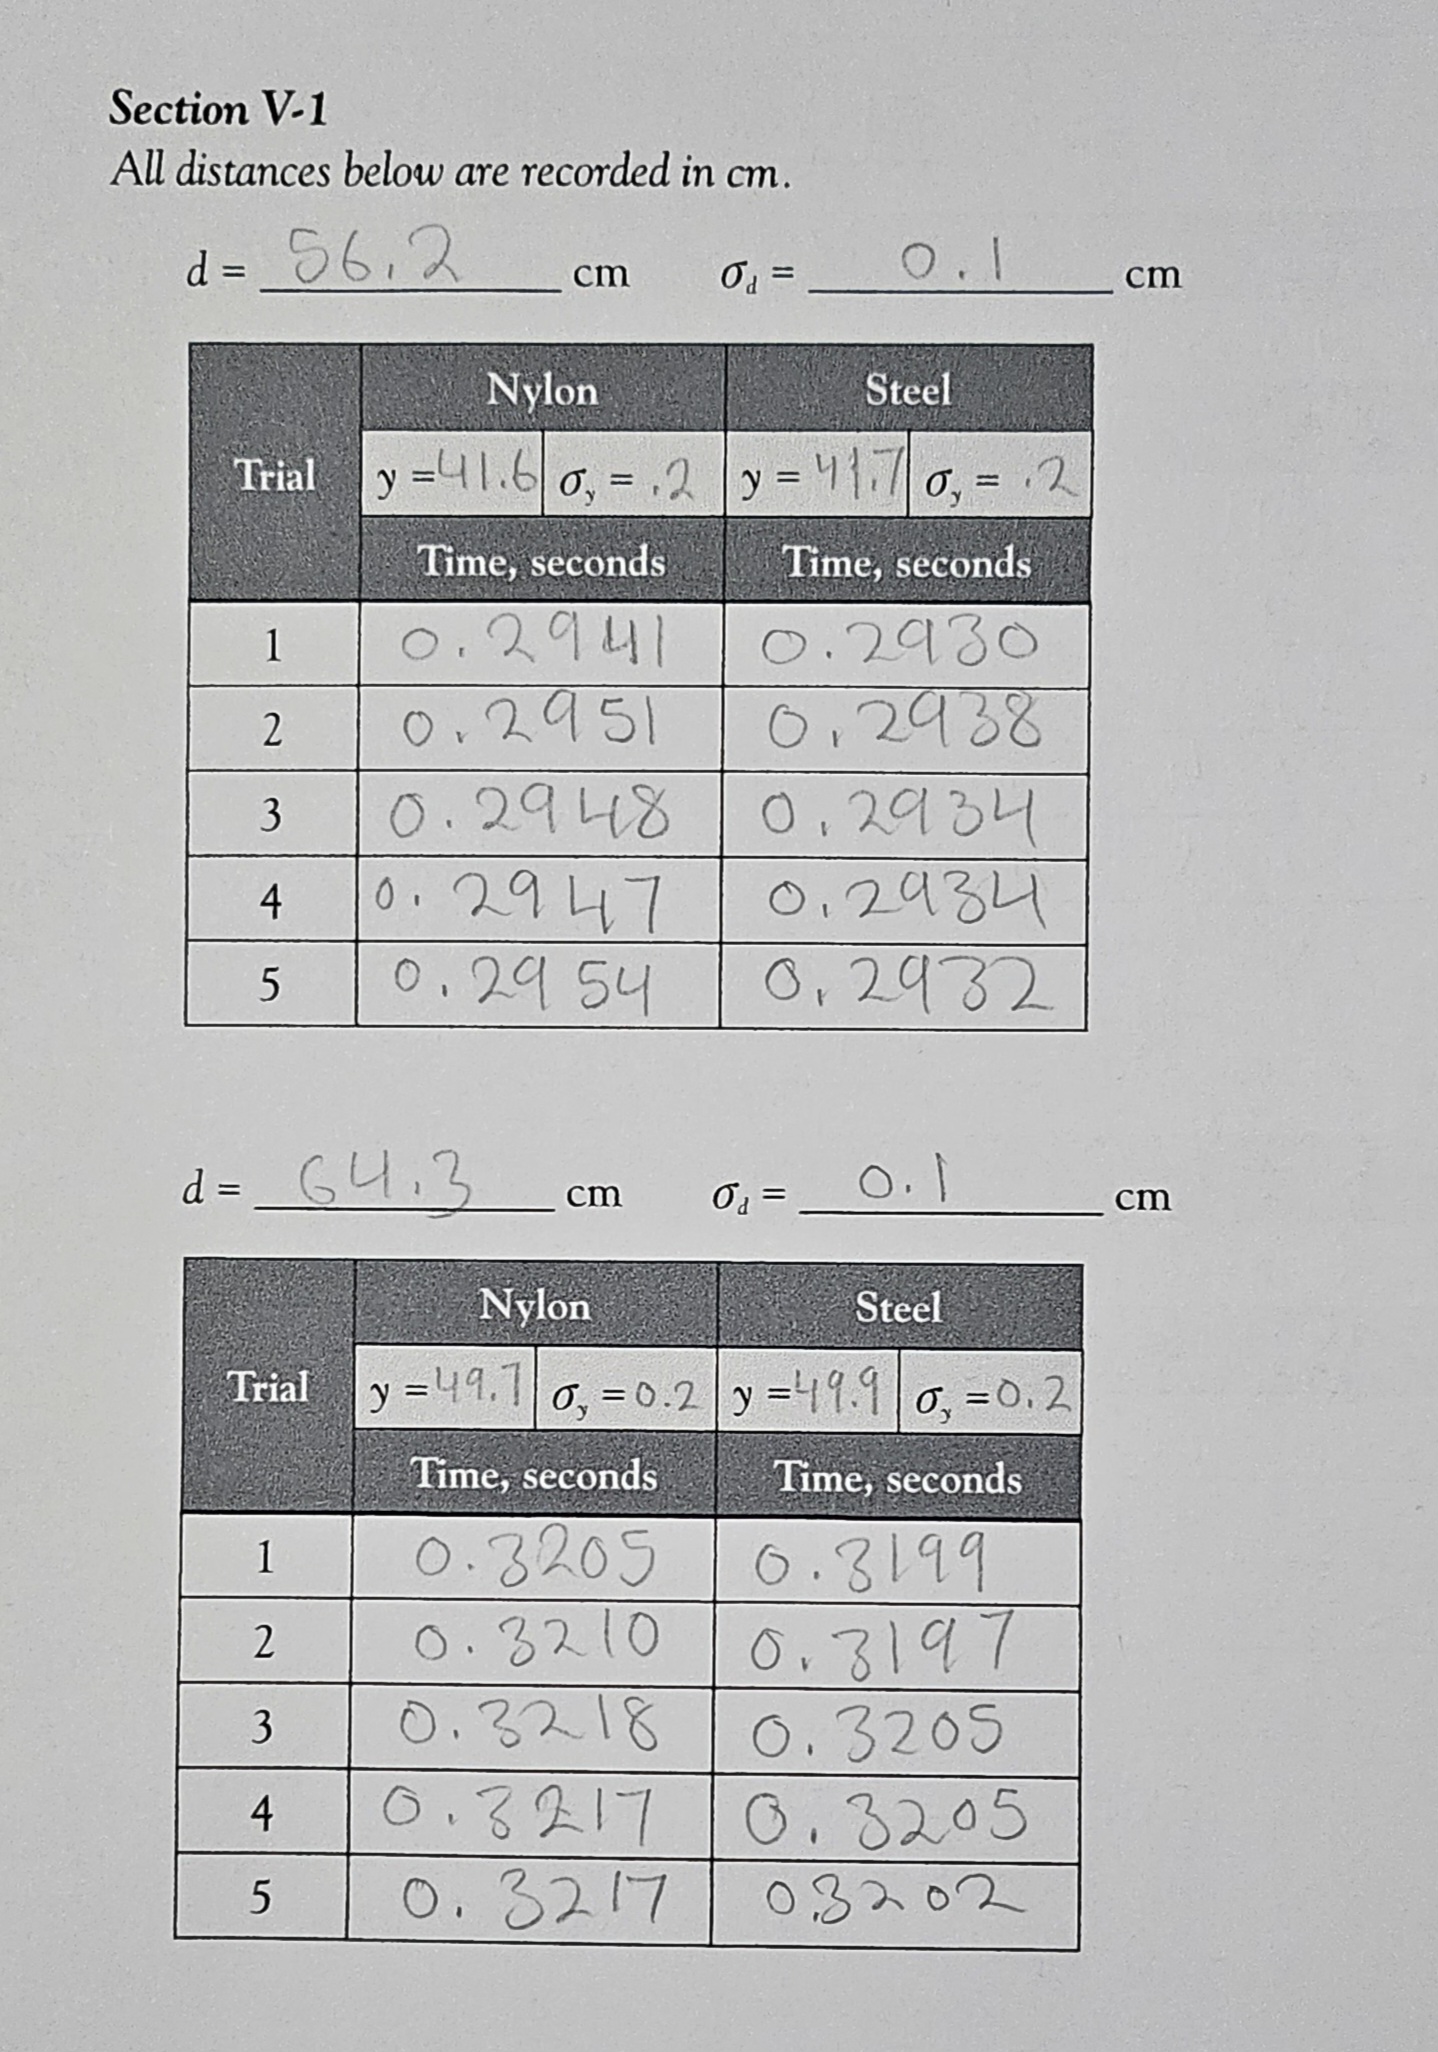 Section V-1
All distances below are recorded in cm.
d = 56.2 cm σd = 0.1 cm
Nylon Steel
Trial y = 41.6 σy = .2 y = 41.7 σy = .2
Time, seconds Time, seconds
1 0.2941 0.2930
2 0.2951 0.2938
3 0.2948 0.2934
4 0.2947 0.2934
5 0.2954 0.2932
d = 64.3 cm σd = 0.1 cm
Nylon Steel
Trial y = 49.7 σy = 0.2 y = 49.9 σy = 0.2
Time, seconds Time, seconds
1 0.3205 0.3199
2 0.3210 0.3197
3 0.3218 0.3205
4 0.3217 0.3205
5 0.3217 0.3202